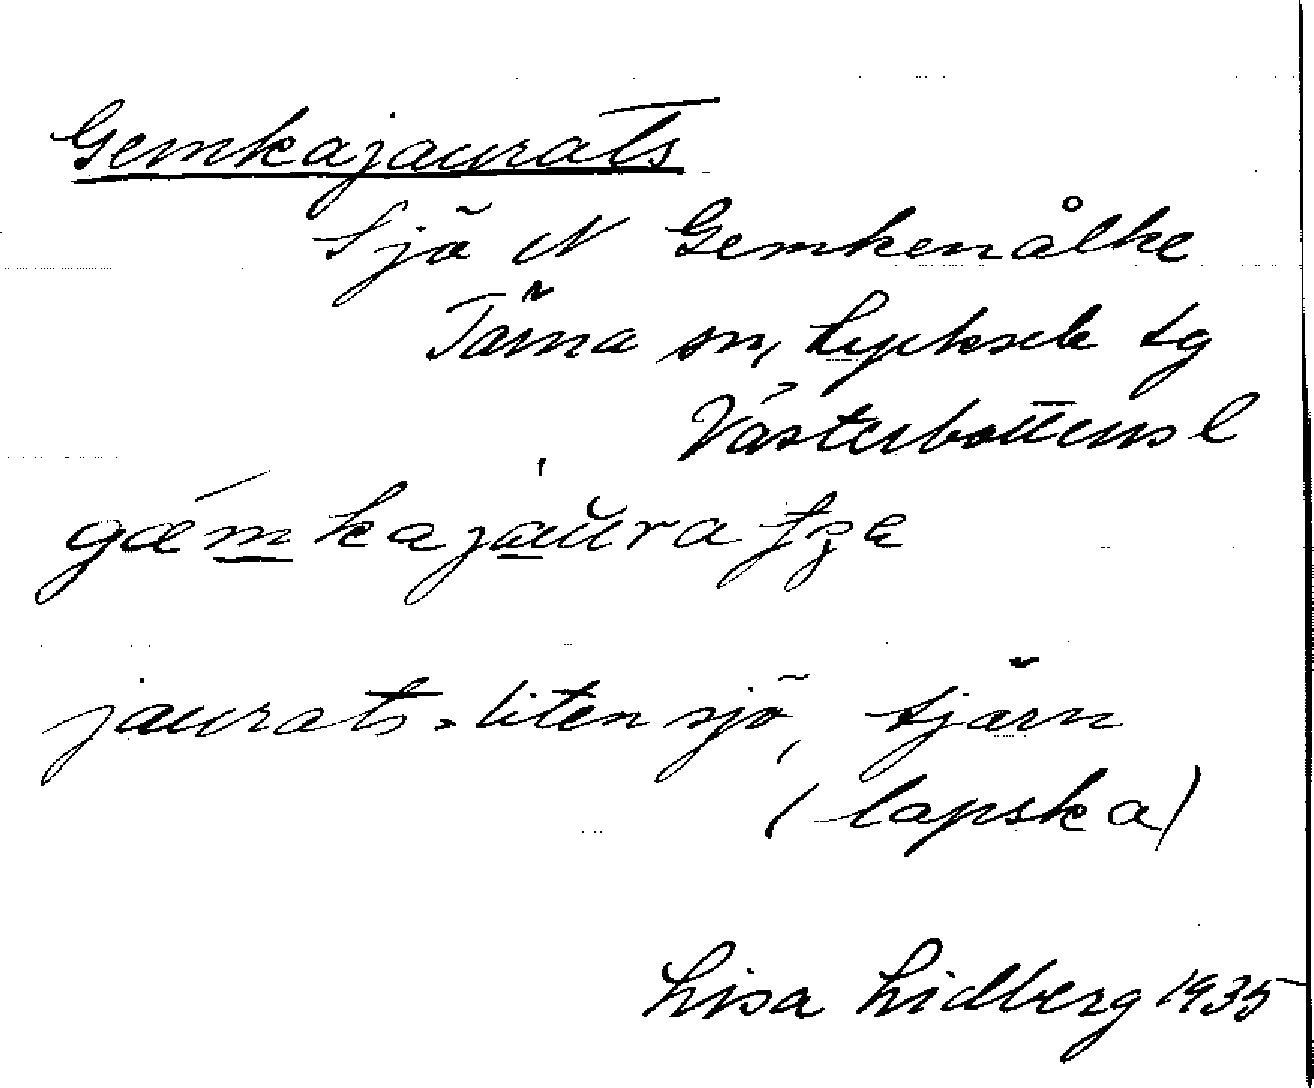 Gemkajaurats
Sjö N Gemkenålke
Tärna sn, Lycksele tg
Västerbottens l
gæmkajaŭra tze
jaurats = liten sjö, tjärn
(lapska)
Lisa Lidberg 1935